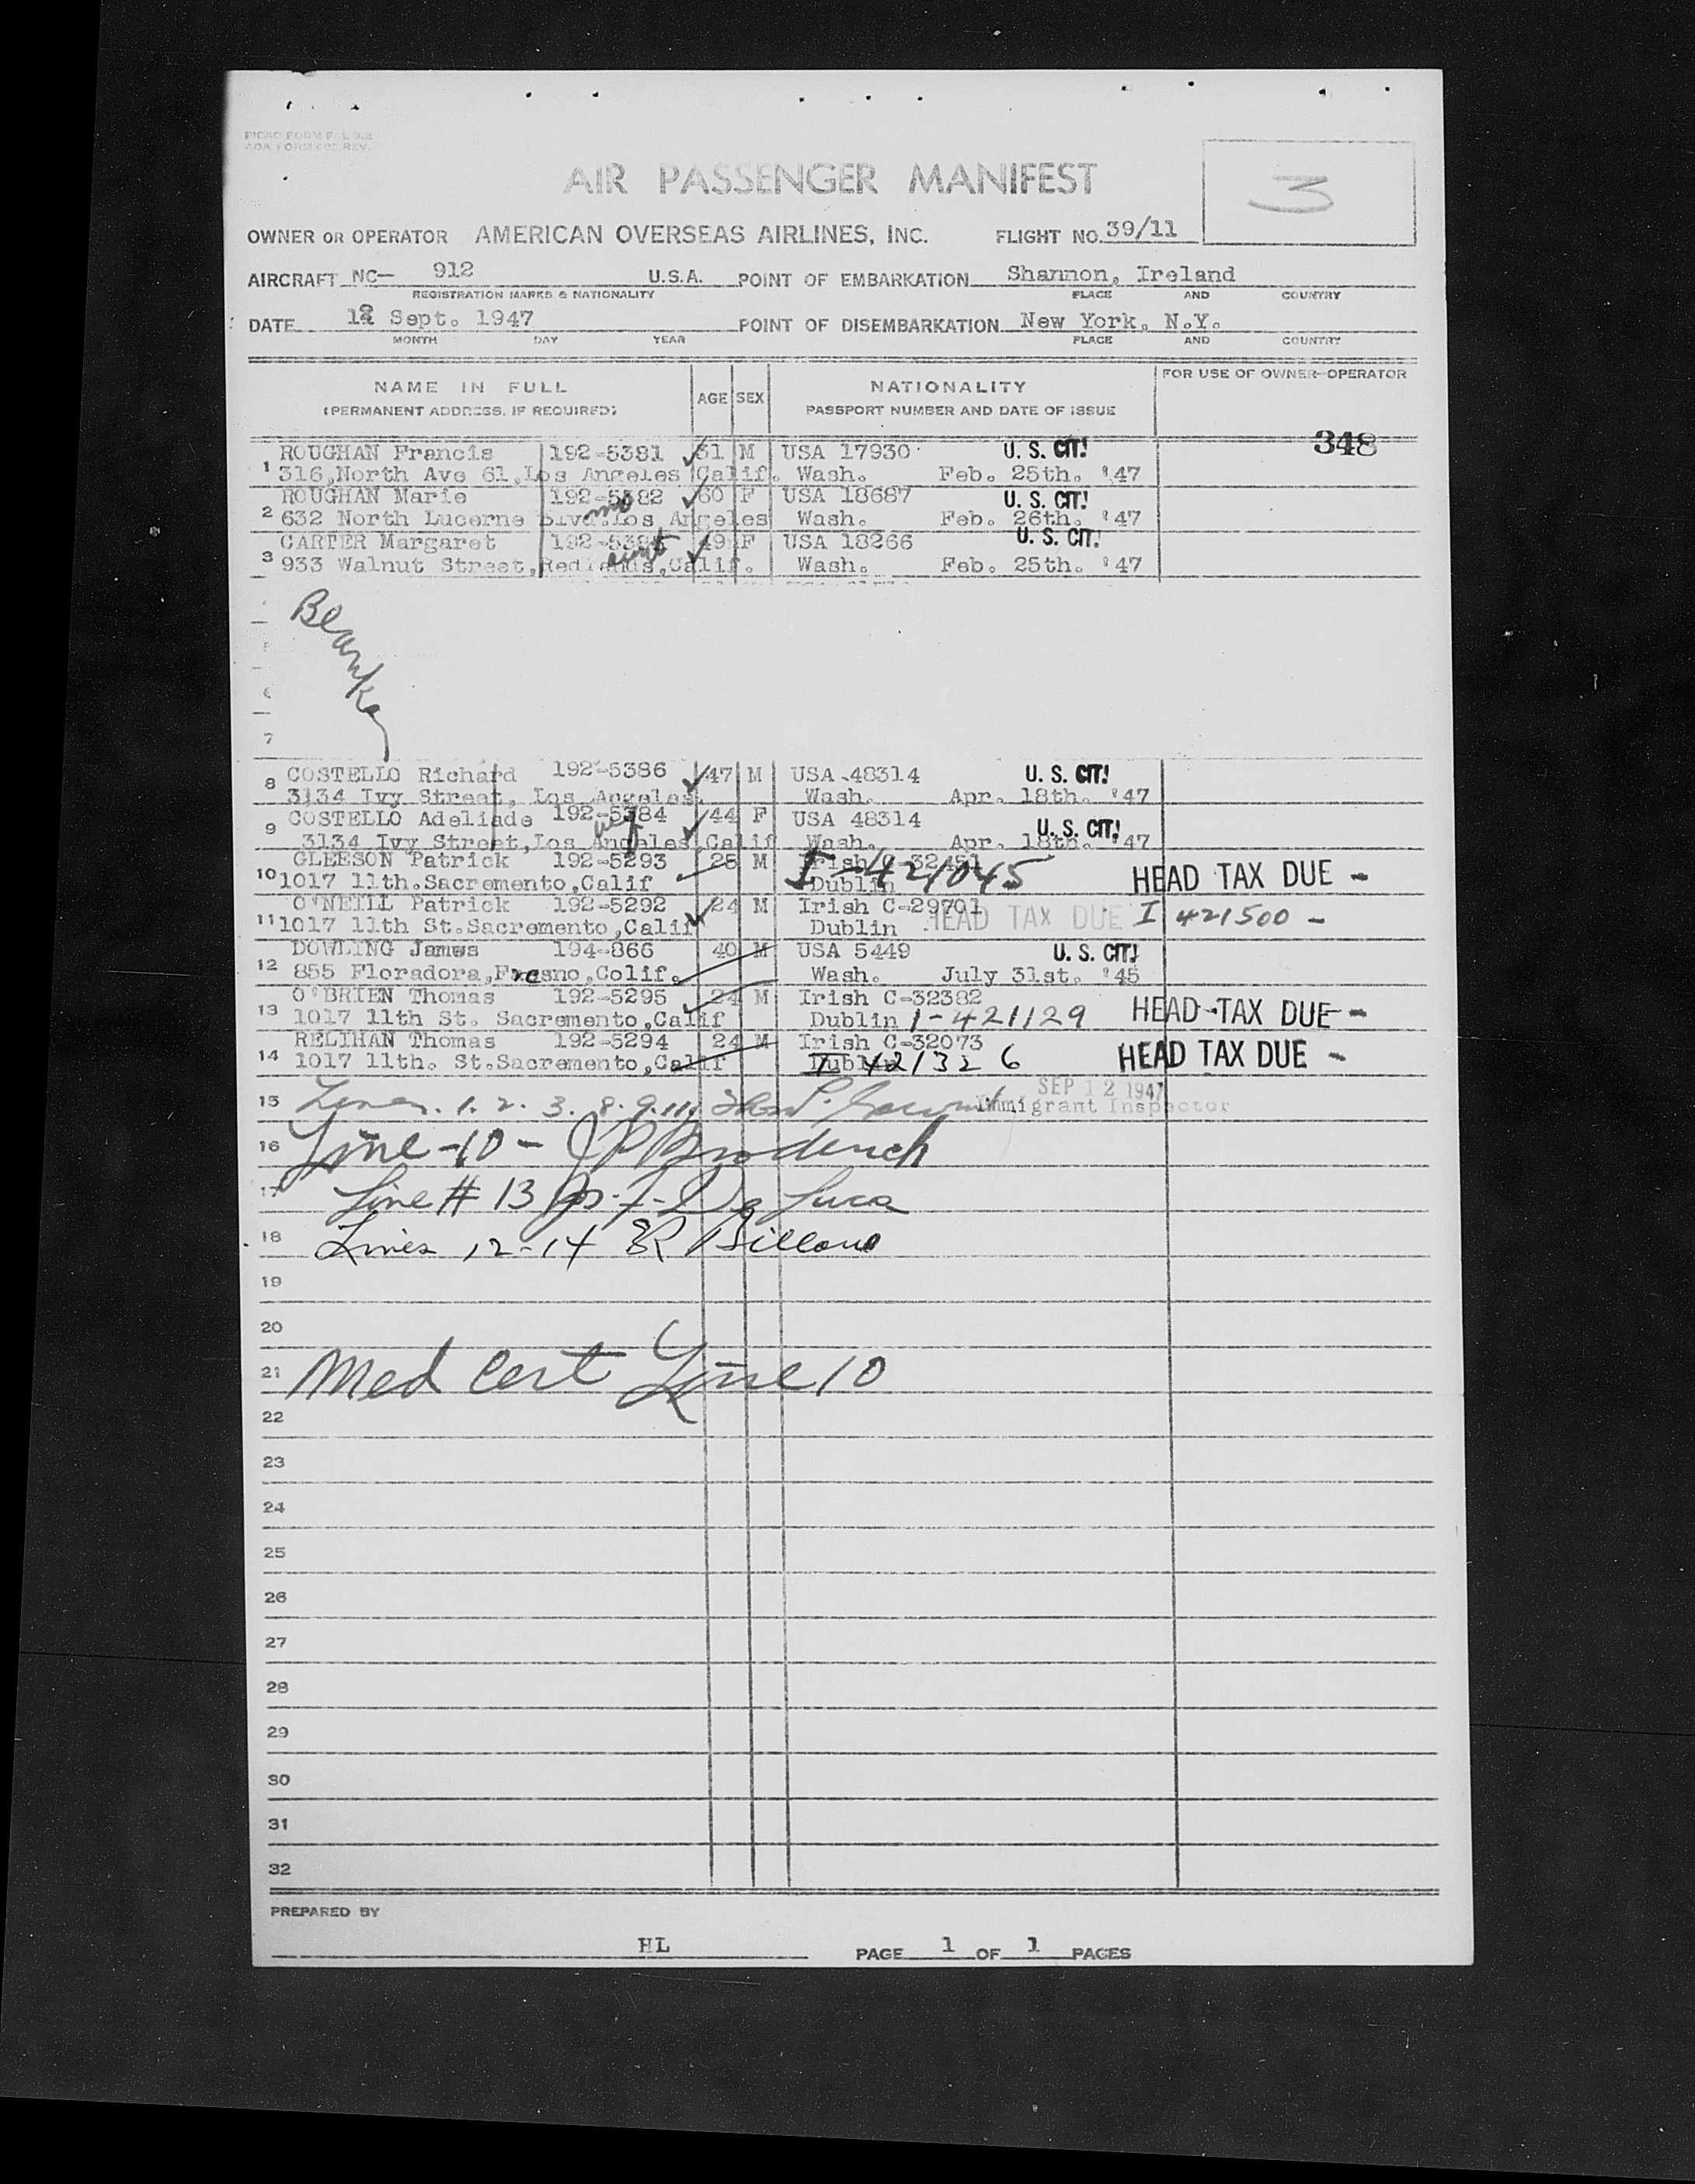 AIR PASSENGER MANIFEST
3
OWNER OR OPERATOR AMERICAN OVERSEAS AIRLINES, INC. FLIGHT NO. 39/11
AIRCRAFT NC— 912 U.S.A. POINT OF EMBARKATION Shannon, Ireland
REGISTRATION MARKS & NATIONALITY PLACE AND COUNTRY
DATE Sept. 1947 POINT OF DISEMBARKATION New York, N.Y.
MONTH DAY YEAR PLACE AND COUNTRY
NAME IN FULL AGE SEX NATIONALITY FOR USE OF OWNER-OPERATOR
(PERMANENT ADDRESS, IF REQUIRED) PASSPORT NUMBER AND DATE OF ISSUE
348
ROUGHAN Francis 192-5381 31 M USA 17930 U. S. CIT!
1 316,North Ave 61,Los Angeles Calif. Wash. Feb. 25th. '47
ROUGHAN Marie 192-5382 60 F USA 18687 U. S. CIT!
2 632 North Lucerne Blvd.Los Angeles Wash. Feb. 26th. '47
CARTER Margaret 49 F USA 18266 U. S. CIT!
3 933 Walnut Street,Redlands,Calif. Wash. Feb. 25th. '47
6
7
COSTELLO Richard 192-5386 47 M USA 48314 U. S. CIT!
8 3134 Ivy Street, Los Angeles. Wash. Apr. 18th. '47
COSTELLO Adeliade 192-5384 44 F USA 48314 U. S. CIT!
9 3134 Ivy Street,Los Angeles,Calif Wash. Apr. 18th. '47
GLEESON Patrick 192-5293 25 M Irish I-421045
10 1017 11th.Sacremento,Calif Dublin HEAD TAX DUE -
O'NEILL Patrick 192-5292 24 M Irish C-29701 HEAD TAX DUE I 421500 -
11 1017 11th St.Sacremento,Calif Dublin
DOWLING James 194-866 40 M USA 5449 U. S. CIT!
12 855 Floradora,Fresno,Colif. Wash. July 31st. '45
O'BRIEN Thomas 192-5295 24 M Irish C-32382
13 1017 11th St. Sacremento,Calif Dublin 1-421129 HEAD TAX DUE -
RELIHAN Thomas 192-5294 24 M Irish C-32073
14 1017 11th. St.Sacremento,Calif Dublin I 421326 HEAD TAX DUE -
SEP 12 1947
15 Lines. 1. 2. 3. 8. 9. 11, Immigrant Inspector
16 Line -10- J P Broderick
17 Line # 13 De Luca
18 Lines 12-14
19
20
21 Med Cert Line 10
22
23
24
25
26
27
28
29
30
31
32
PREPARED BY
HL PAGE 1 OF 1 PAGES